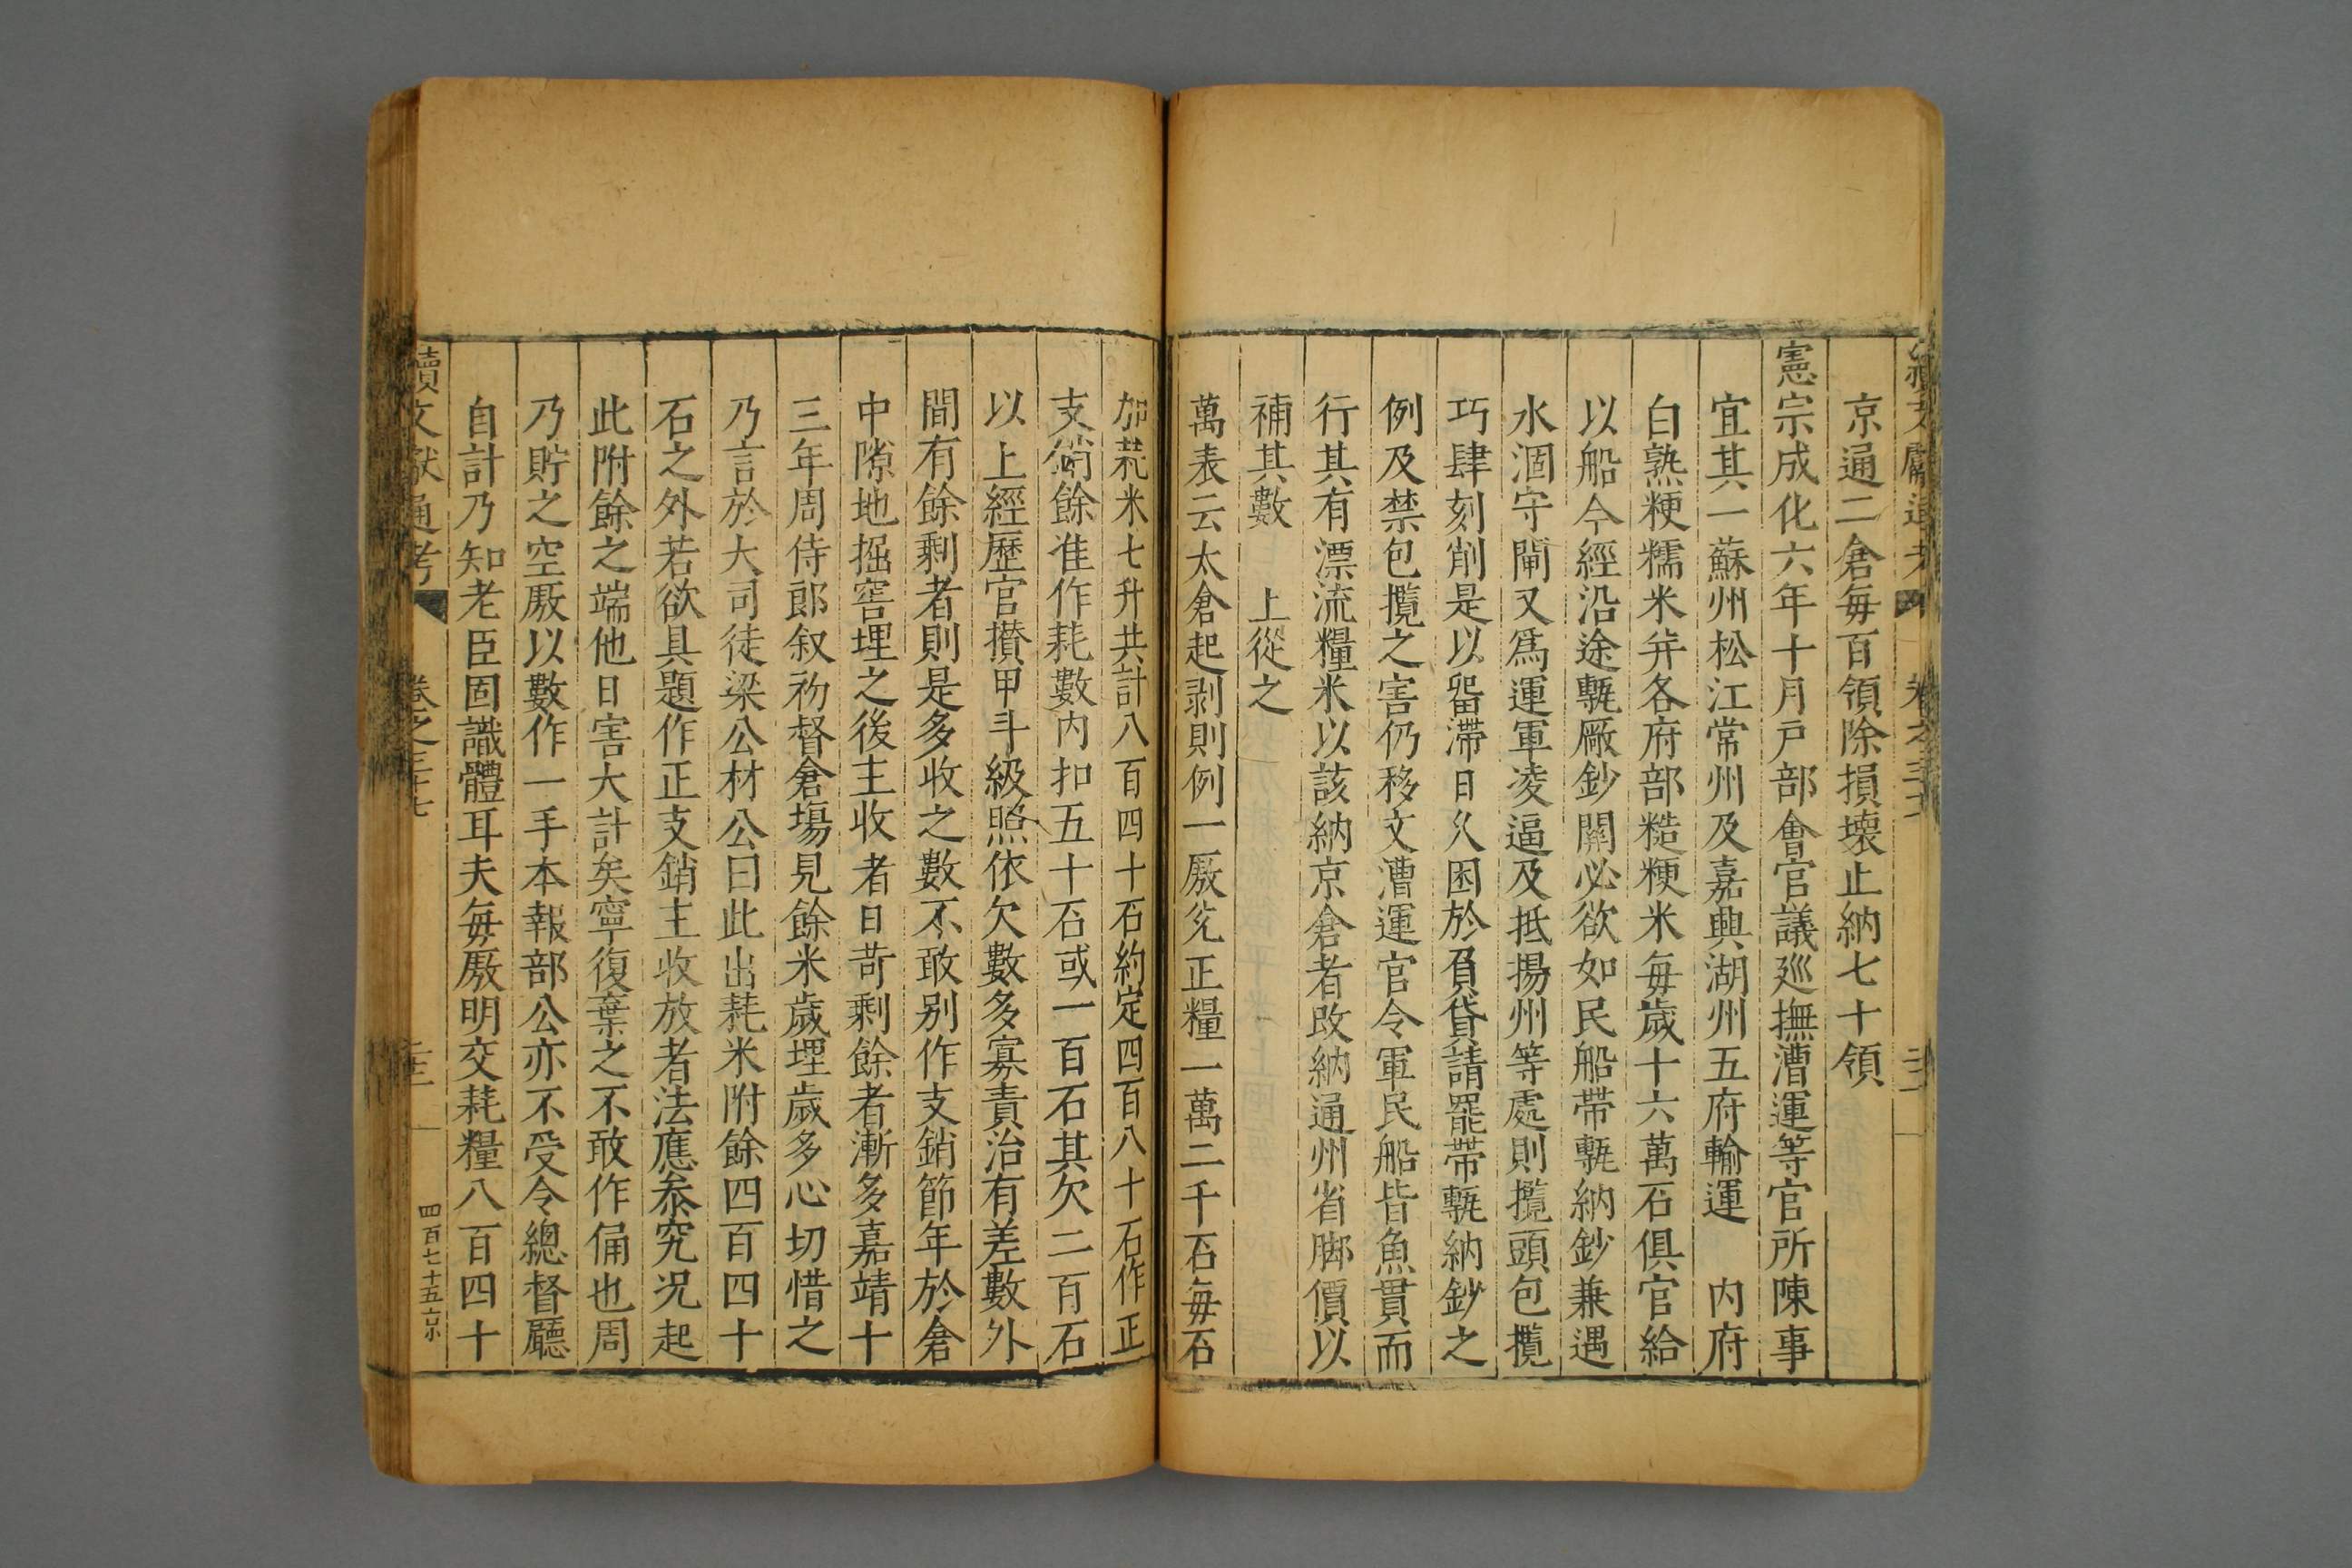 京通二倉每百領除損壞止納七十領
憲宗成化六年十月戸部會官議廵撫漕運等官所陳事
宜其一蘇州松江常州及嘉興湖州五府輸運　內府
白熟粳糯米并各府部糙粳米每歲十六萬石俱官給
以船今經沿途甎廠鈔關必欲如民船帶甎納鈔兼遇
水涸守閘又爲運軍凌逼及抵揚州等處則攬頭包攬
巧肆刻削是以畱滯日久困於負貸請罷帶甎納鈔之
例及禁包攬之害仍移文漕運官令軍民船皆魚貫而
行其有漂流糧米以該納京倉者改納通州省脚價以
補其數　上從之
萬表云太倉起剥則例一厫兊正糧一萬二千石每石
加耗米七升共計八百四十石約定四百八十石作正
支銷餘准作耗數内扣五十石或一百石其欠二百石
以上經歷官攅甲斗級照依欠數多寡責治有差數外
間有餘剩者則是多收之數不敢别作支銷節年於倉
中隙地掘窖埋之後主收者日苛剩餘者漸多嘉靖十
三年周侍郎叙初督倉塲見餘米歲埋歲多心切惜之
乃言於大司徒梁公材公曰此出耗米附餘四百四十
石之外若欲具題作正支銷主收放者法應叅究况起
此附餘之端他日害大計矣寧復棄之不敢作俑也周
乃貯之空厫以數作一手本報部公亦不受令總督廳
自計乃知老臣固識體耳夫每厫明交耗糧八百四十
續文獻通考　卷之三十七　二十二　四百七十五